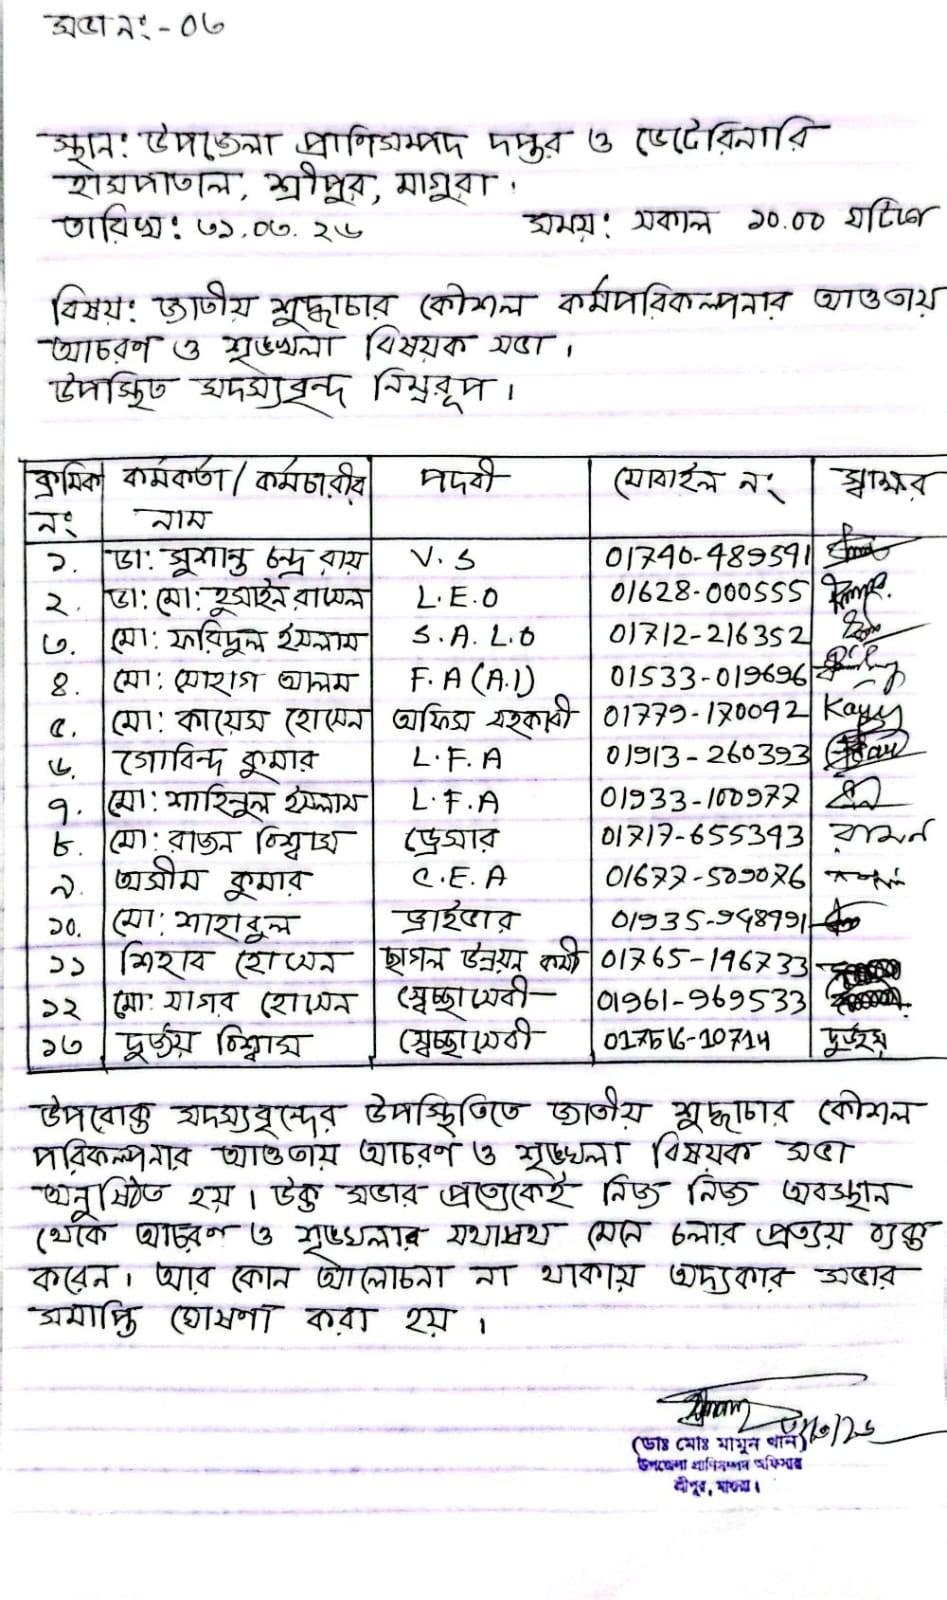 সভা নং - ০৩
স্থান: উপজেলা প্রাণিসম্পদ দপ্তর ও ভেটেরিনারি
হাসপাতাল, শ্রীপুর, মাগুরা।
তারিখ: ৩১.০৩.২৬ সময়: সকাল ১০.০০ ঘটিকা
বিষয়: জাতীয় শুদ্ধাচার কৌশল কর্মপরিকল্পনার আওতায়
আচরণ ও শৃঙ্খলা বিষয়ক সভা।
উপস্থিত সদস্যবৃন্দ নিম্নরূপ।
ক্রমিক নং কর্মকর্তা/কর্মচারীর নাম পদবী মোবাইল নং স্বাক্ষর
১. ডা: সুশান্ত চন্দ্র রায় V.S 01740-489591
২. ডা: মো: হুসাইন রাসেল L.E.O 01628-000555
৩. মো: ফরিদুল ইসলাম S.A.L.O 01712-216352
৪. মো: সোহাগ আলম F.A (A.I) 01533-019696
৫. মো: কায়েস হোসেন অফিস সহকারী 01779-170092
৬. গোবিন্দ কুমার L.F.A 01913-260393
৭. মো: শাহিনুল ইসলাম L.F.A 01933-100977
৮. মো: রাজন বিশ্বাস ড্রেসার 01717-655393
৯. অসীম কুমার C.E.A 01677-509076
১০. মো: শাহাবুল ড্রাইভার 01935-948991
১১ শিহাব হোসেন ছাগল উন্নয়ন কর্মী 01765-196733
১২ মো: সাগর হোসেন স্বেচ্ছাসেবী 01961-969533
১৩ দুর্জয় বিশ্বাস স্বেচ্ছাসেবী দুর্জয়
উপরোক্ত সদস্যবৃন্দের উপস্থিতিতে জাতীয় শুদ্ধাচার কৌশল
পরিকল্পনার আওতায় আচরণ ও শৃঙ্খলা বিষয়ক সভা
অনুষ্ঠিত হয়। উক্ত সভার প্রত্যেকেই নিজ নিজ অবস্থান
থেকে আচরণ ও শৃঙ্খলার যথাযথ মেনে চলার প্রত্যয় ব্যক্ত
করেন। আর কোন আলোচনা না থাকায় অদ্যকার সভার
সমাপ্তি ঘোষণা করা হয়।
(ডাঃ মোঃ মামুন খান)
উপজেলা প্রাণিসম্পদ অফিসার
শ্রীপুর, মাগুরা।